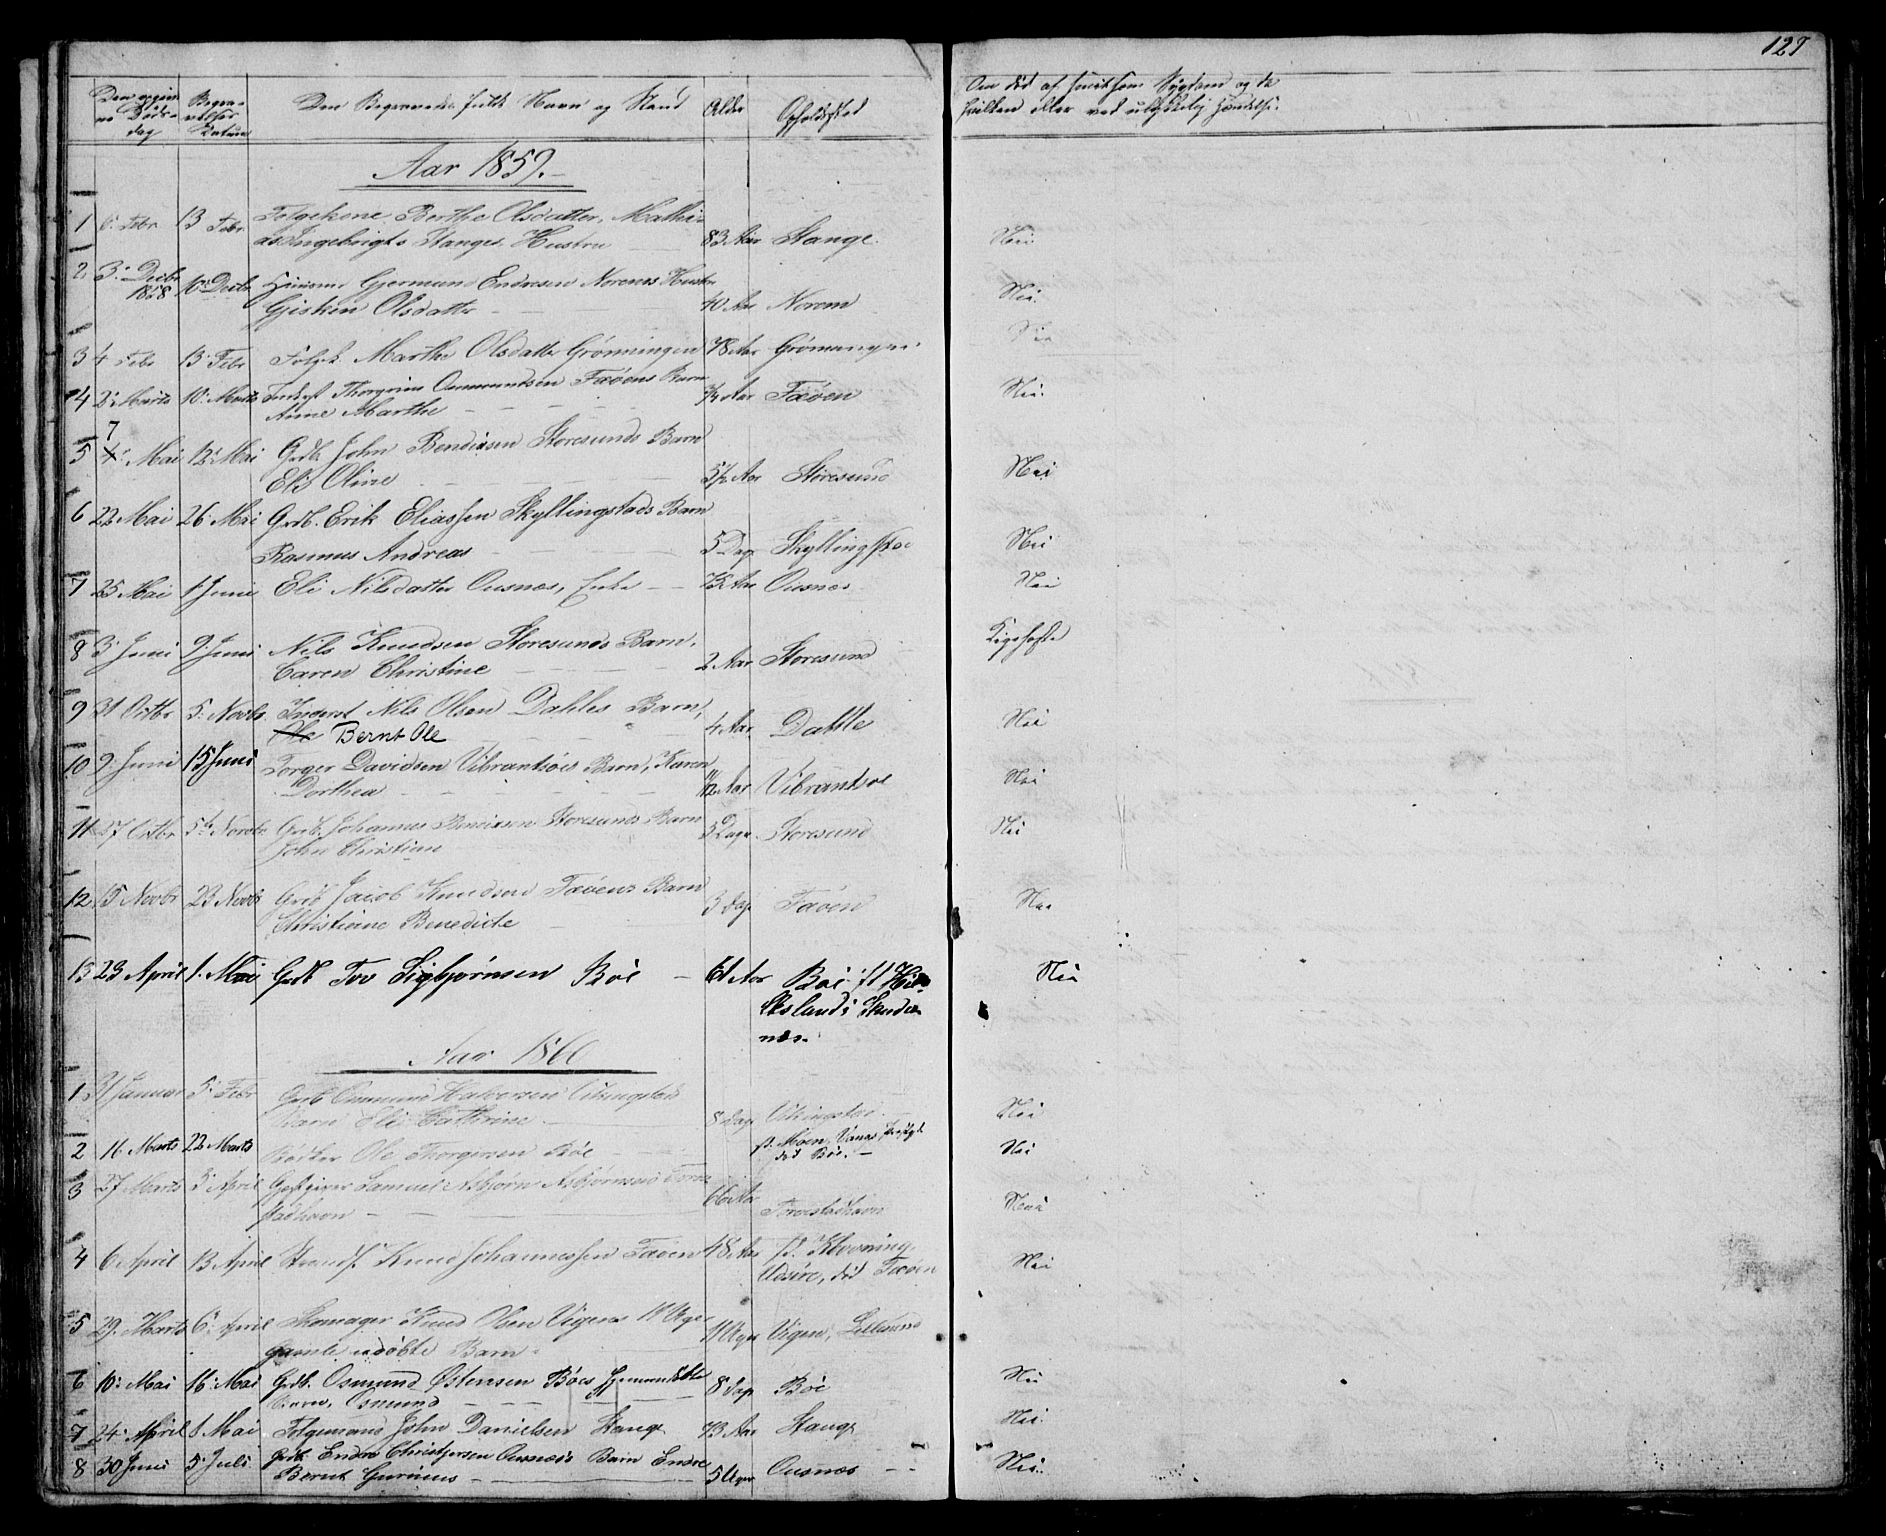 127
Begra-
velses
Datum
Den Begravedes fulde Navn og Stand
Alder
Opholdssted
Om død af smitsom Sygdom og da
hvilken eller ved ulykkelig Hændelse
Aar 1859.
1 6 Febr 13 Febr Folgekone Berthe Olsdatter, Mathi-
as Ingebrigts Stanges Hustru 83 Aar Stange. Nei
2 3. Decbr 1858 10 Decbr Gjermund Endresen Norems Hustru
Gjisken Olsdatter 40 Aar Norem Nei
3 4 Febr 13 Febr Marthe Olsdatter Grønningen 78 Aar
4 2 Marts 10. Marts Inderst Thorgrim Oummundsen Føøens Barn
Anne Marthe 3/4 Aar Føøen Nei
5 7 Mai 12. Mai Grdb. John Bendixen Storesunds Barn
Eli Oline 5 1/2 Aar Storesund Nei
6 22 Mai 26. Mai Grdb. Erik Eliassen Skyllingstads Barn
Rasmus Andreas 5 Dag Nei
7 25 Mai 1. Juni Eli Nilsdatter Ousnæs, Enke Ousnæs Nei
8 3. Juni 9. Juni Nils Knudsen Storesunds Barn,
Caren Christine 2 Aar Storesund
9 31 Octbr 5. Novbr. Inderst Nils Olsen Dahles Barn,
Bernt Ole 4 Aar Dahle Nei
10 9. Juni 15 Juni Torger Davidsen Vibrantsøes Barn, Karen
Dorthea 11/12 Aar Vibrantsøe Nei
11 27 Octbr 5te Novbr Grdb. Johannes Bendixen Storesunds Barn
John Christian 5 Dage Storesund Nei
12 15 Novbr 23 Novbr Grdb Jacob Knudsen Føøens Barn
Christiane Benedicte 3 Dag Føøen Nei
13 23 April 1. Mai Grdb Tov Sigbjørnsen Bøe 61 Aar Bøe
Skudes-
næs.
Nei
Aar 1860
1 31 Januar 5. Febr Grdb Oummund Halvorsen Vikingstads
Barn Eli Cathrine 8 Dag Nei
2 11. Marts 22 Marts Bødker Ole Thorgersen Bøe
død Bøe. Nei
3 27 Marts 3 April Gjestgiver Samuel Asbjørn Asbjørnsen
stadhavn 66 Aar Torvestadhavn
4 6 April 13 April Knud Johannessen Føøen 48 Aar
Udsire, død Føøen Nei
5 29. Marts 6. April Skomager Knud Olsen Vigens 11 Uger
gamle udøbte Barn 11 Uger Vigen,
6 10. Mai 16. Mai Grdb. Osmund Østensen Bøes hjemmedøbte
Barn, Osmund 8 Dag Bøe Nei
7 24. April 1 Mai Folgemand John Danielsen Stange 73 Aar Stange Nei
8 30 Juni 5. Juli Grdb. Endre Christophersen Ousnæs's Barn Endre
Bernt 5 Uger Ousnæs Nei